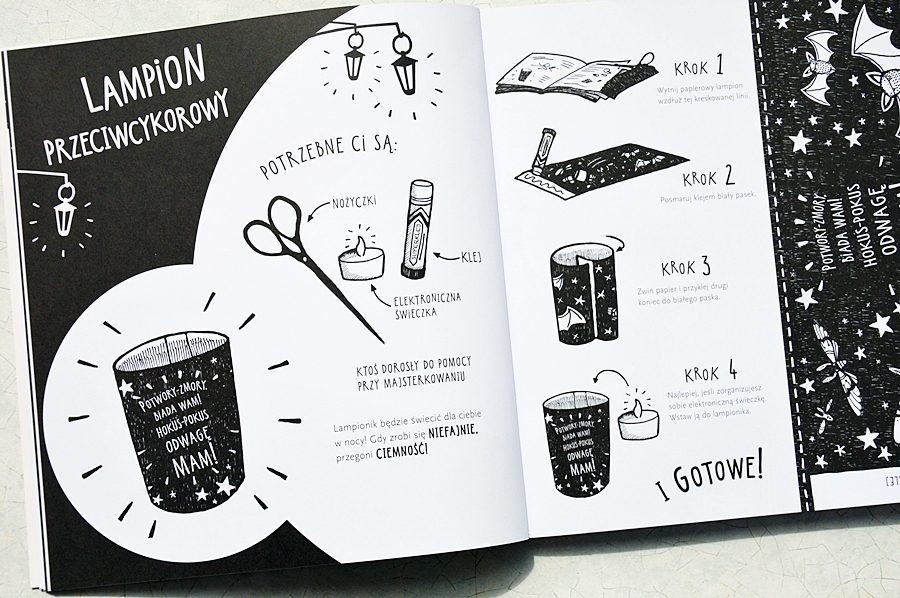 LAMPiON
PRZECIWCYKOROWY
POTRZEBNE Ci SĄ:
NOŻYCZKI
KLEJ
ELEKTRONICZNA
ŚWIECZKA
KTOŚ DOROSŁY DO POMOCY
PRZY MAJSTERKOWANIU
Lampionik będzie świecić dla ciebie
w nocy! Gdy zrobi się NIEFAJNIE,
przegoni CIEMNOŚĆ!
POTWORY-ZMORY,
BIADA WAM!
HOKUS-POKUS
ODWAGĘ
MAM!
KROK 1
Wytnij papierowy lampion
wzdłuż tej kreskowanej linii.
KROK 2
Posmaruj klejem biały pasek.
KROK 3
Zwiń papier i przyklej drugi
koniec do białego paska.
KROK 4
Najlepiej, jeśli zorganizujesz
sobie elektroniczną świeczkę.
Wstaw ją do lampionika.
POTWORY-ZMORY,
BIADA WAM!
HOKUS-POKUS
ODWAGĘ
MAM!
I GOTOWE!
POTWORY-ZMORY,
BIADA WAM!
HOKUS-POKUS
ODWAGĘ